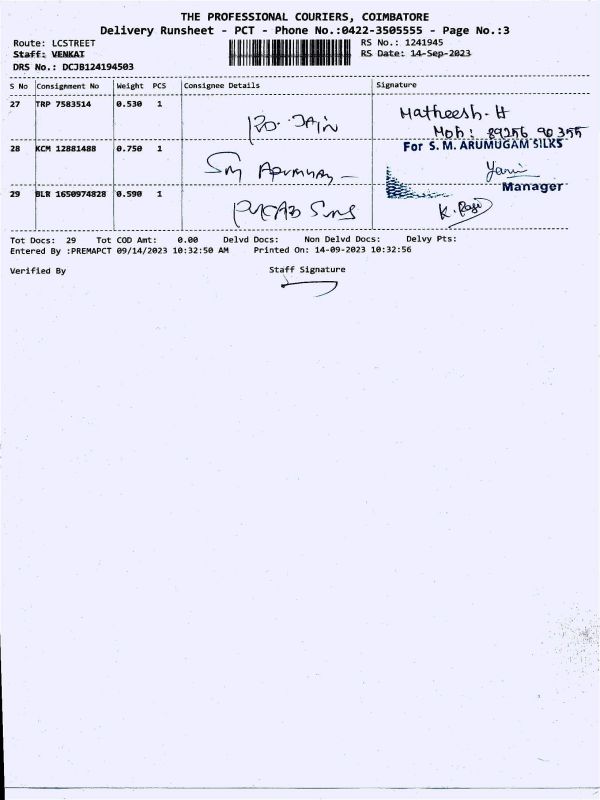 THE PROFESSIONAL COURIERS, COIMBATORE
Delivery Runsheet - PCT - Phone No.:0422-3505555 - Page No.:3
Route: LCSTREET RS No.: 1241945
Staff: VENKAT RS Date: 14-Sep-2023
DRS No.: DCJB124194503
S No Consignment No Weight PCS Consignee Details Signature
27 TRP 7583514 0.530 1 JAIN Matheesh. H
Mob: 89256 90355
28 KCM 12881488 0.750 1 Sm For S. M. ARUMUGAM SILKS
Manager
29 BLR 1650974828 0.590 1 K. Raji
Tot Docs: 29 Tot COD Amt: 0.00 Delvd Docs: Non Delvd Docs: Delvy Pts:
Entered By :PREMAPCT 09/14/2023 10:32:50 AM Printed On: 14-09-2023 10:32:56
Verified By Staff Signature